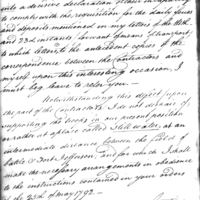 into a decisive declaration of their
to comply with the requisition for the
and deposits mentioned in my letters of the 18th
and 23d instants. Covert Means of transport;
to which letters, to the antecedent copies of the
correspondence between the Contractors and
myself upon this interesting occasion, I
must beg leave to refer you.
Notwithstanding this defect upon
the part of the Contractors I do not despair of
supporting the troops in our present position
or rather at a place called Still water, at an
intermediate distance between the field of
battle & Fort Jefferson, and for which I shall
make the necessary arrangements in obedience
to the instructions contained in your orders
the 25th of May 1792.